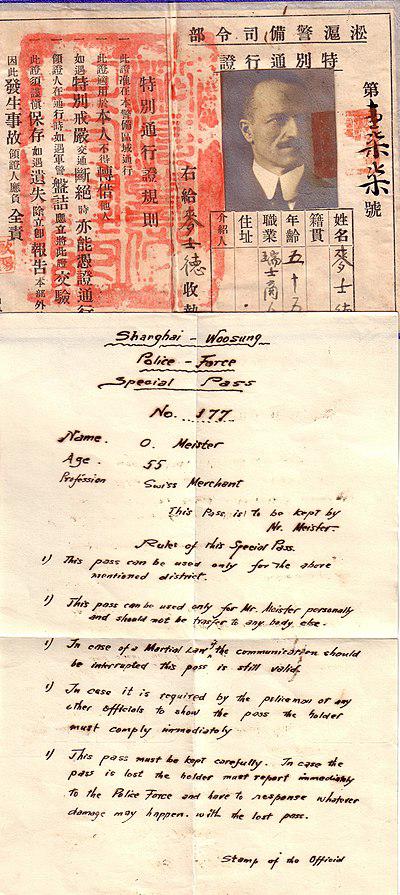 淞滬警備司令部
特別通行證
第壹柒柒號
姓名 麥士德
籍貫
年齡 五十五
職業 瑞士商
住址
介紹人
右給麥士德收執
特別通行證規則
一 此證准在本警備區域通行
一 此證適用於本人不得轉借他人
一 如遇特別戒嚴交通斷絕時亦能憑證通行
一 領證人在通行時如遇軍警盤詰應立將此證交驗
一 此證須謹慎保存如遇遺失除立刻報告本部外
因此發生事故領證人應負全責
Shanghai - Woosung
Police - Force
Special Pass
No. 177
Name. O. Meister
Age. 55
Profession Swiss Merchant
This Pass is to be kept by
Mr. Meister.
Rules of this Special Pass.
1) This pass can be used only for the above
mentioned district.
1) This pass can be used only for Mr. Meister personally
and should not be trasfer to any body else.
1) In case of a Martial Law & the communication should
be interrupted this pass is still valid.
1) In case it is required by the policeman or any
other officials to show the pass the holder
must comply immediately
1) This pass must be kept carefully. In case the
pass is lost the holder must report immediately
to the Police Force and have to response whatever
damage may happen with the lost pass.
Stamp of the Official